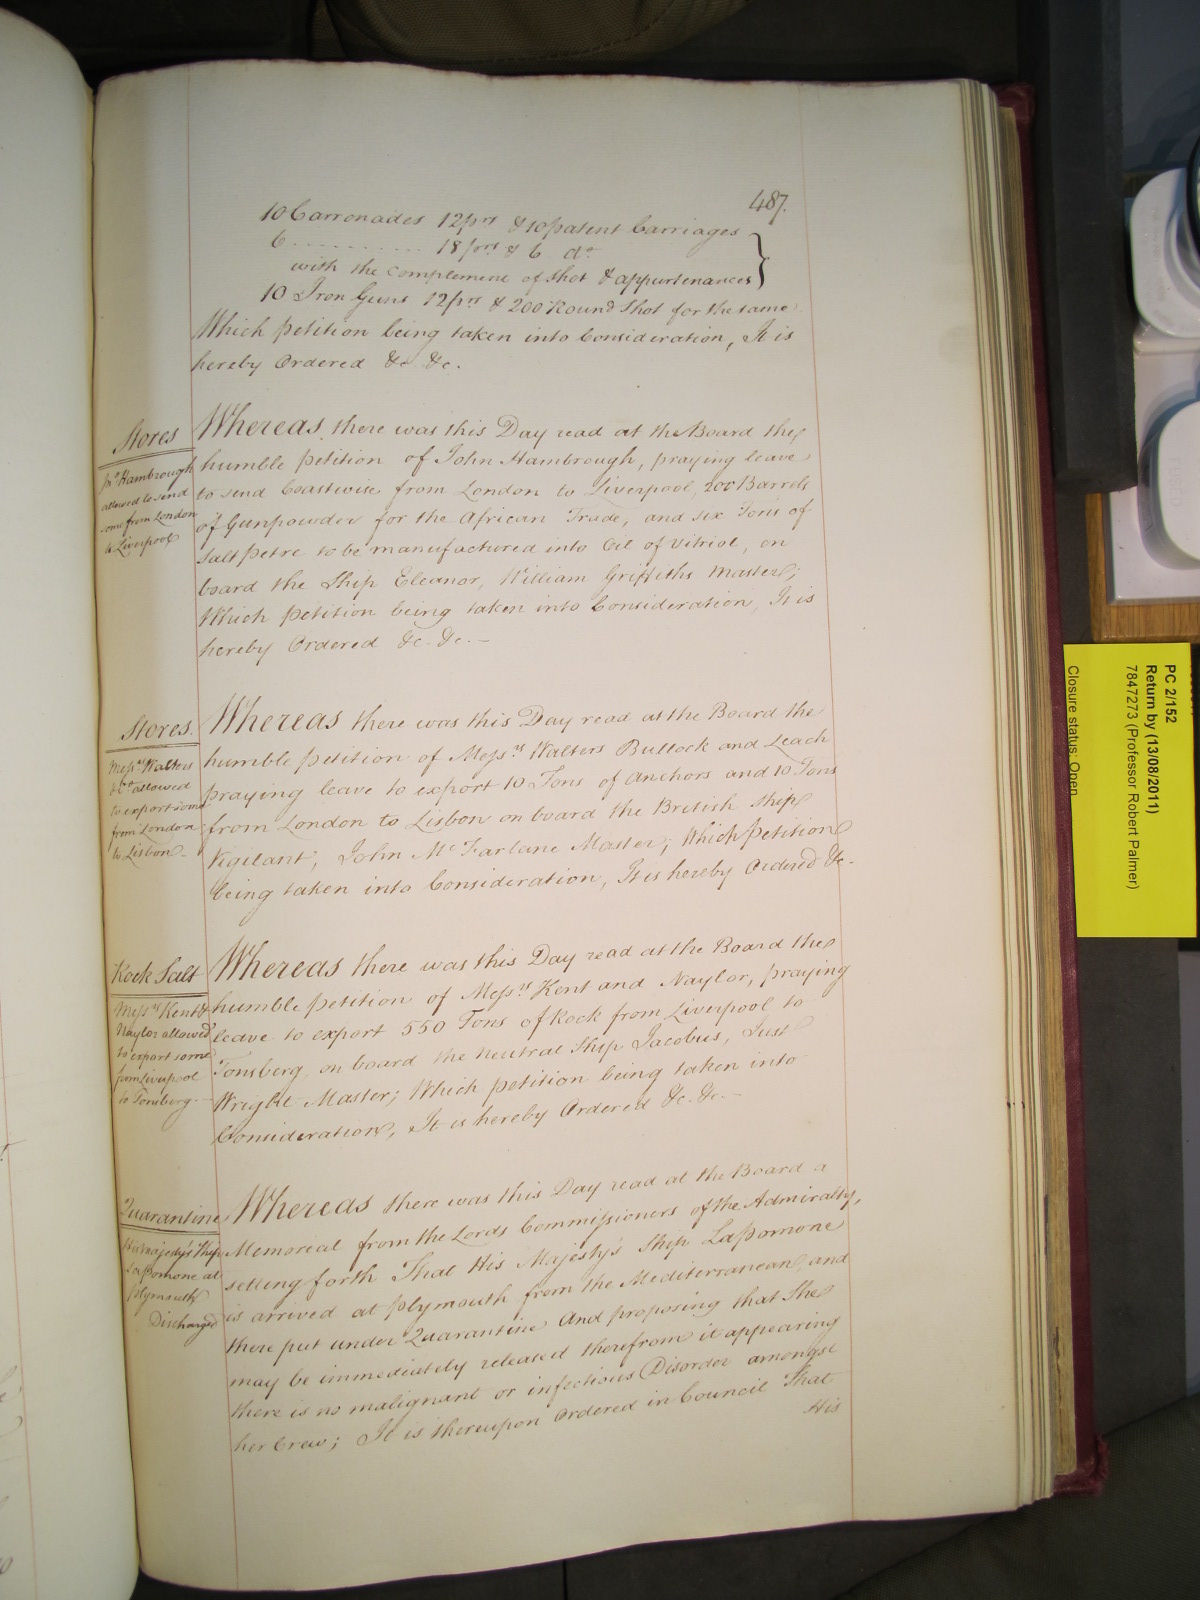 487.
10 Carronades 12prs & 10 patent Carriages
6 ........... 18 prs & 6 do
with the Complement of Shot & appurtenances
10 Iron Guns 12prs & 200 Round Shot for the same
Which petition being taken into Consideration, It is
hereby Ordered &c &c.
Stores
Jno. Hambrough
allowed to send
some from London
to Liverpool
Whereas there was this Day read at the Board the
humble petition of John Hambrough, praying leave
to send Coastwise from London to Liverpool, 200 Barrels
of Gunpowder for the African Trade, and six Tons of
Salt petre to be manufactured into Oil of Vitriol, on
board the Ship Eleanor, William Griffiths Master;
Which petition being taken into Consideration, It is
hereby Ordered &c. &c. —
Stores.
Messrs Walters
& Co allowed
to export some
from London
to Lisbon —
Whereas there was this Day read at the Board the
humble petition of Messrs Walters Bullock and Leach
praying leave to export 10 Tons of Anchors and 10 Tons
from London to Lisbon on board the British Ship
Vigilant, John McFarlane Master; Which petition
being taken into Consideration, It is hereby Ordered &c.
Rock Salt
Messrs Kent &
Naylor allowed
to export some
from Liverpool
to Tonsberg —
Whereas there was this Day read at the Board the
humble petition of Messrs Kent and Naylor, praying
leave to export 550 Tons of Rock from Liverpool to
Tonsberg, on board the neutral Ship Jacobus, Just
Wright Master; Which petition being taken into
Consideration, It is hereby Ordered &c. &c. —
Quarantine
His Majesty's Ship
La pomone at
plymouth
Discharged
Whereas there was this Day read at the Board a
Memorial from the Lords Commissioners of the Admiralty,
setting forth That His Majesty's Ship La pomone
is arrived at plymouth from the Mediterranean, and
there put under Quarantine And proposing that She
may be immediately released therefrom it appearing
there is no malignant or infectious Disorder amongst
her Crew; It is thereupon Ordered in Council That
His
PC 2/152
Return by (13/08/2011)
7847273 (Professor Robert Palmer)
Closure status, Open